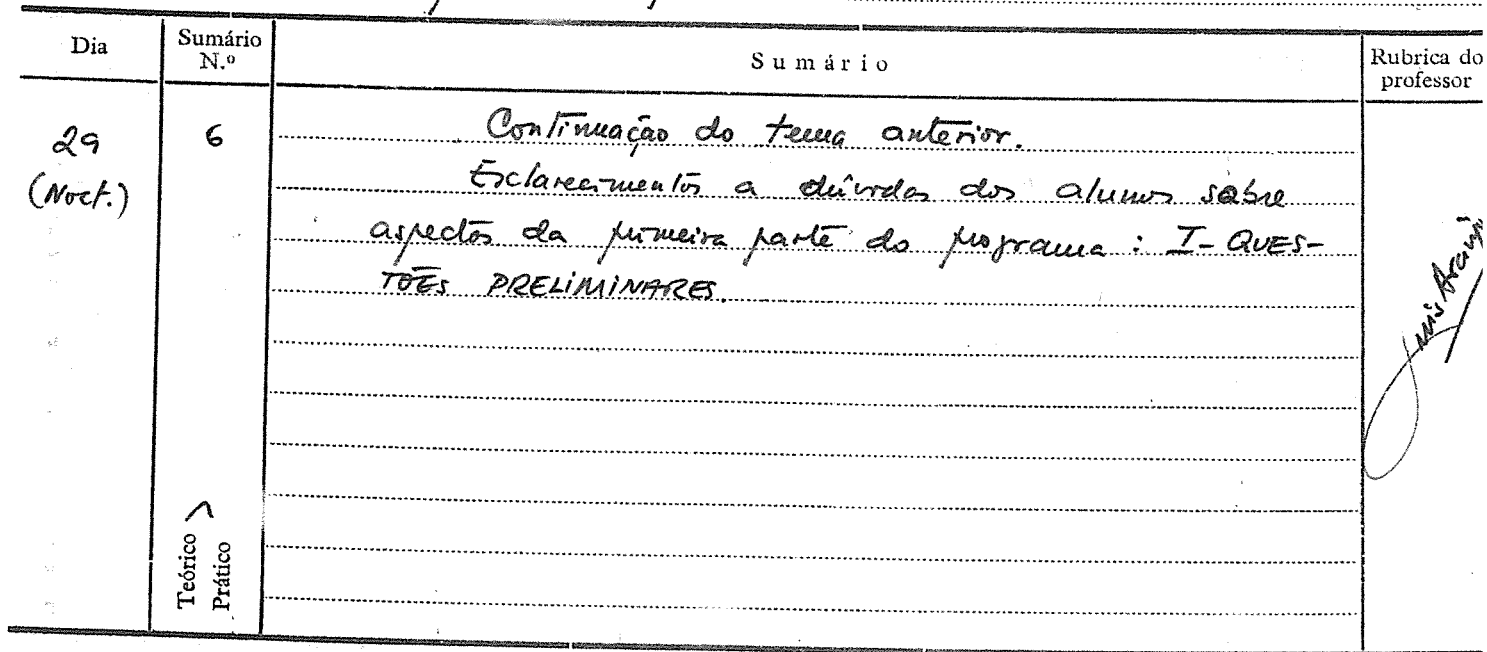 Dia Sumário N.º Sumário Rubrica do professor
29 6 Continuação do tema anterior.
(Noct.) Esclarecimentos a dúvidas dos alunos sobre
aspectos da primeira parte do programa: I- QUES-
TÕES PRELIMINARES.
Luís Araújo
Teórico >
Prático